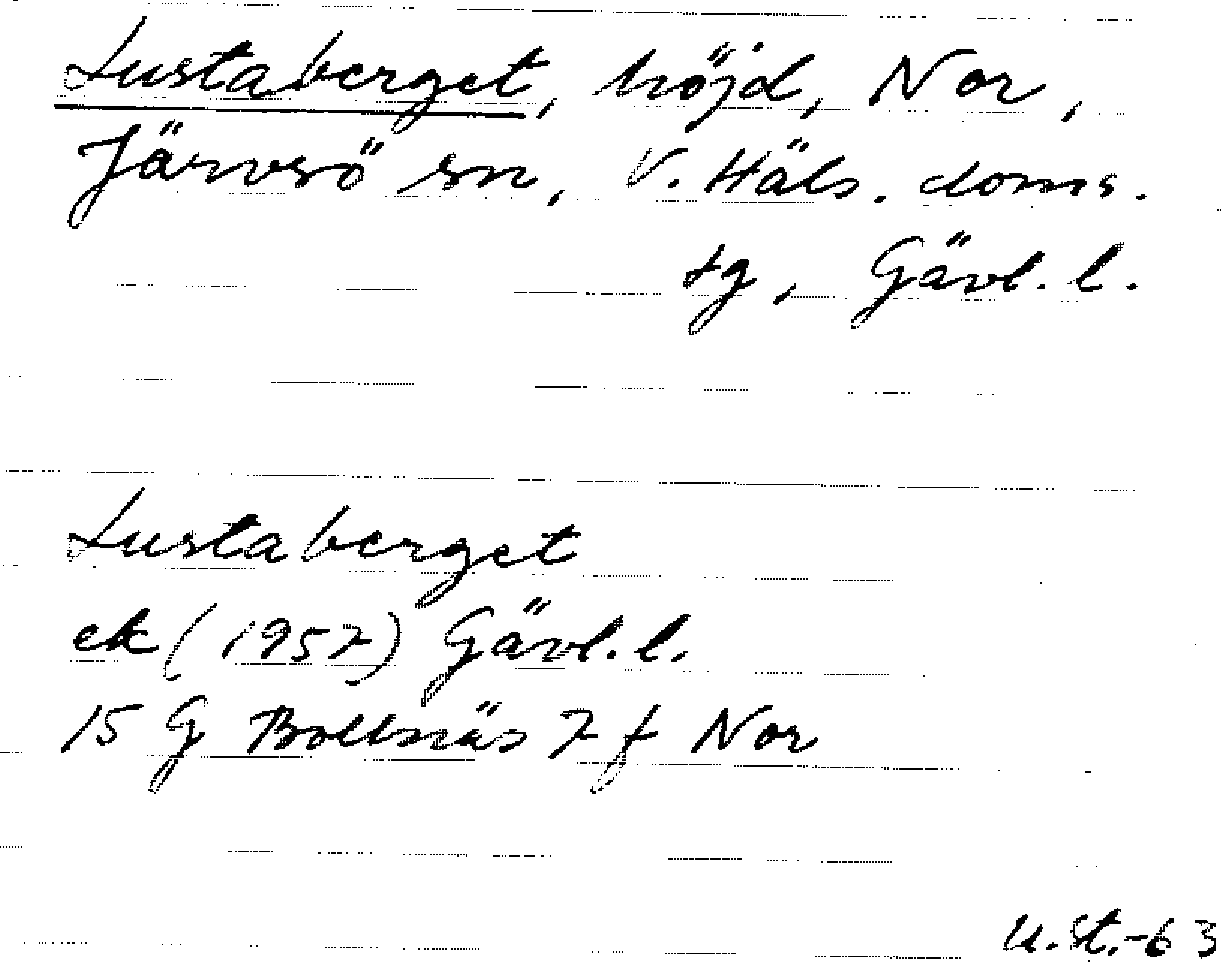 Lustaberget, höjd, Nor,
Järvsö sn, V. Häls. doms.
tg, Gävl. l.
Lustaberget
ek (1957) Gävl. l.
15 G Bollnäs 7 f Nor
U.St.-63